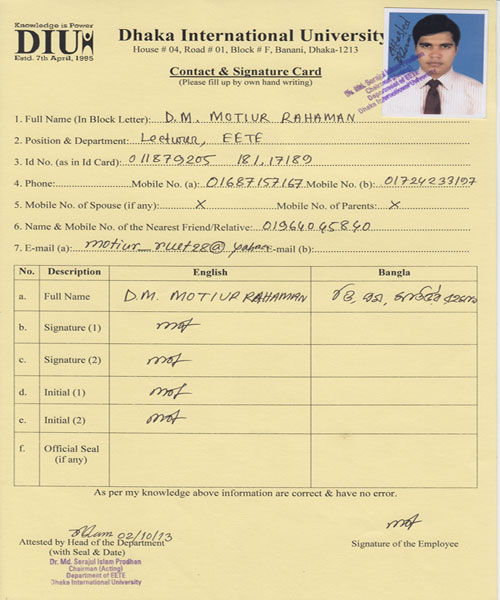 Knowledge is Power
DIU
Estd. 7th April, 1995
Dhaka International University
House # 04, Road # 01, Block # F, Banani, Dhaka-1213
Contact & Signature Card
(Please fill up by own hand writing)
Dr. Md. Serajul Islam Prodhan
Chairman (Acting)
Department of EETE
Dhaka International University
1. Full Name (In Block Letter): D.M. MOTIUR RAHAMAN
2. Position & Department: Lecturer, EETE
3. Id No. (as in Id Card): 011879205 181,17189
4. Phone: Mobile No. (a): 01687157167 Mobile No. (b): 01724233197
5. Mobile No. of Spouse (if any): X Mobile No. of Parents: X
6. Name & Mobile No. of the Nearest Friend/Relative: 01964045840
7. E-mail (a): motiur_ruet28@yahoo E-mail (b):
No. Description English Bangla
a. Full Name D.M. MOTIUR RAHAMAN ডি, এম,
b. Signature (1)
c. Signature (2)
d. Initial (1)
e. Initial (2)
f. Official Seal (if any)
As per my knowledge above information are correct & have no error.
02/10/13
Attested by Head of the Department
(with Seal & Date)
Signature of the Employee
Dr. Md. Serajul Islam Prodhan
Chairman (Acting)
Department of EETE
Dhaka International University